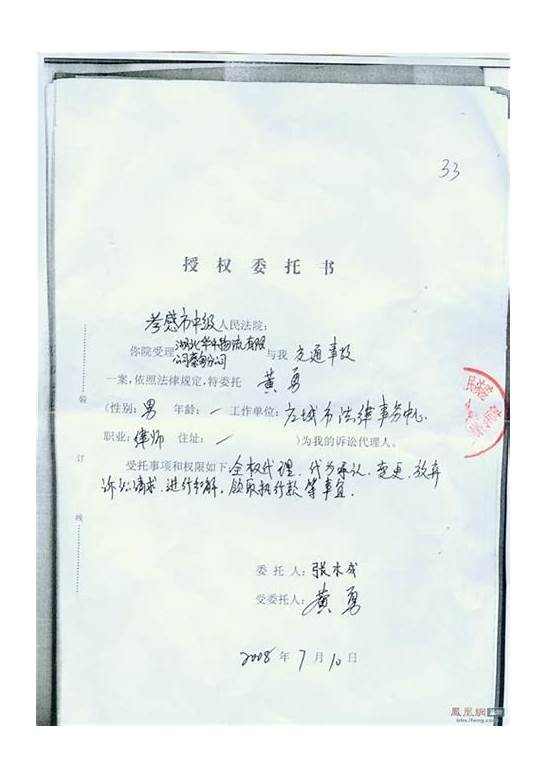 33
授权委托书
孝感市中级人民法院：
你院受理湖北华中物流有限公司蔡甸分公司与我交通事故
一案，依照法律规定，特委托 黄勇
（性别：男 年龄：一 工作单位：应城市法律事务中心
职业：律师 住址：一 ）为我的诉讼代理人。
受托事项和权限如下：全权代理、代为承认、变更、放弃
诉讼请求、进行和解，领取执行款等事宜.
装
订
线
委托人：张木成
受委托人：黄勇
2008年7月10日
凤凰网
bbs.ifeng.com